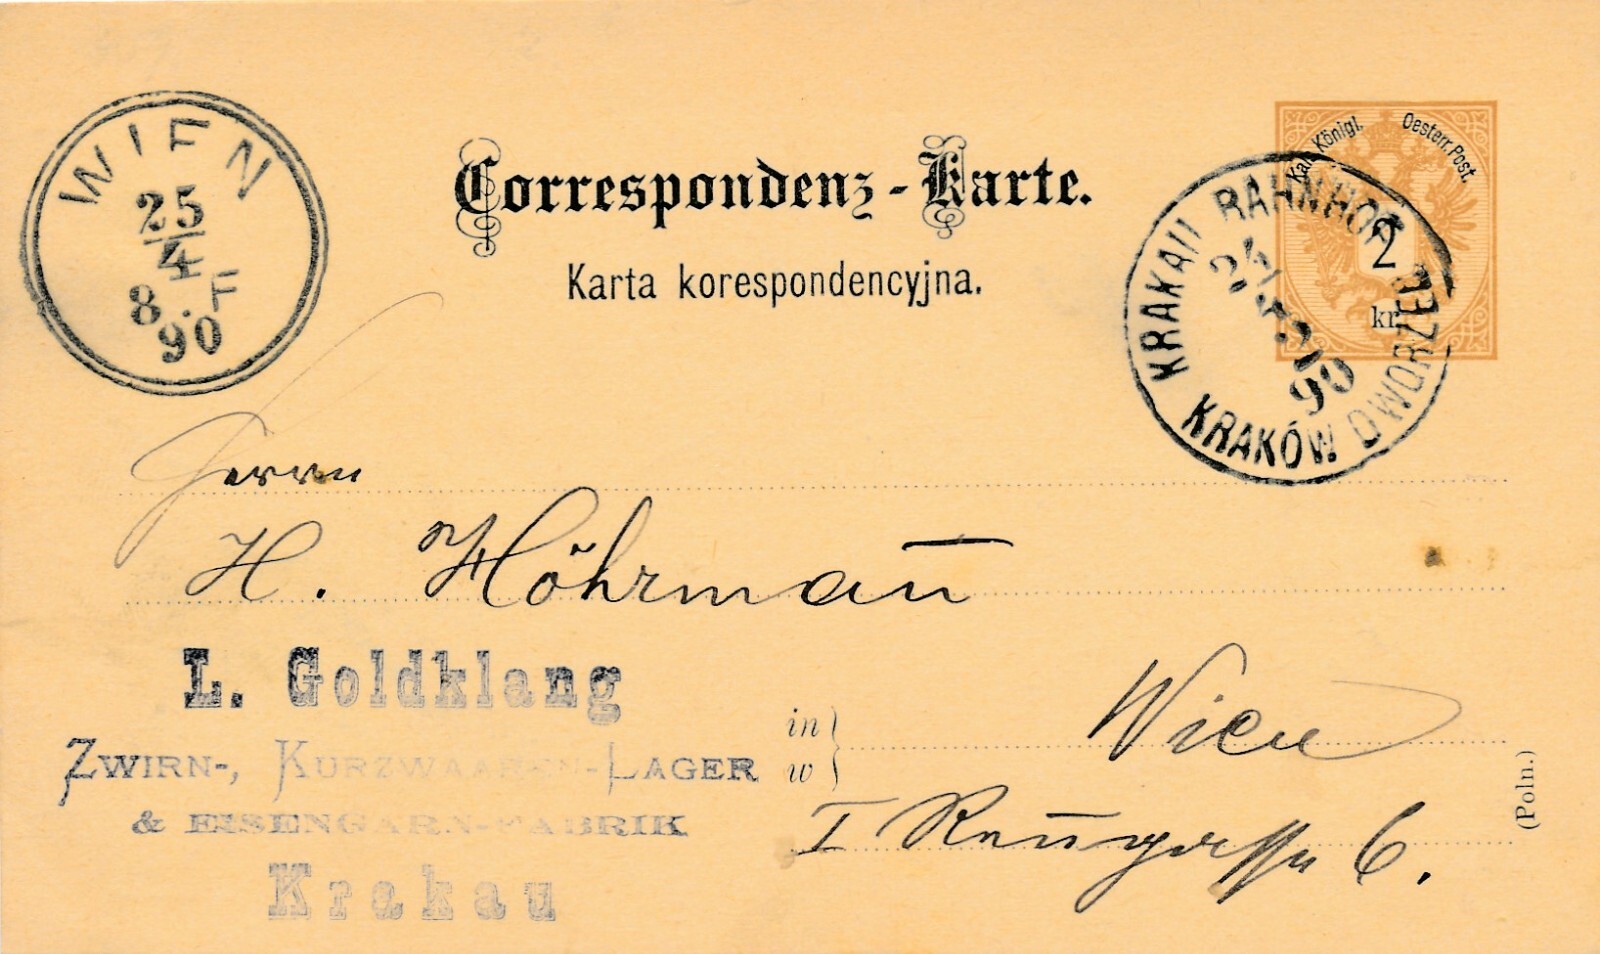 Correspondenz-Karte.
Karta korespondencyjna.
WIEN
25
4
8. F
90
Kais. Königl. Oesterr. Post.
2
kr.
KRAKAU BAHNHOF
KRAKÓW DWORZEC
24
90
Herrn
H. Höhrmañ
L. Goldklang
ZWIRN-, KURZWAAREN-LAGER
& EISENGARN-FABRIK
Krakau
in
w
Wien
I 6.
(Poln.)